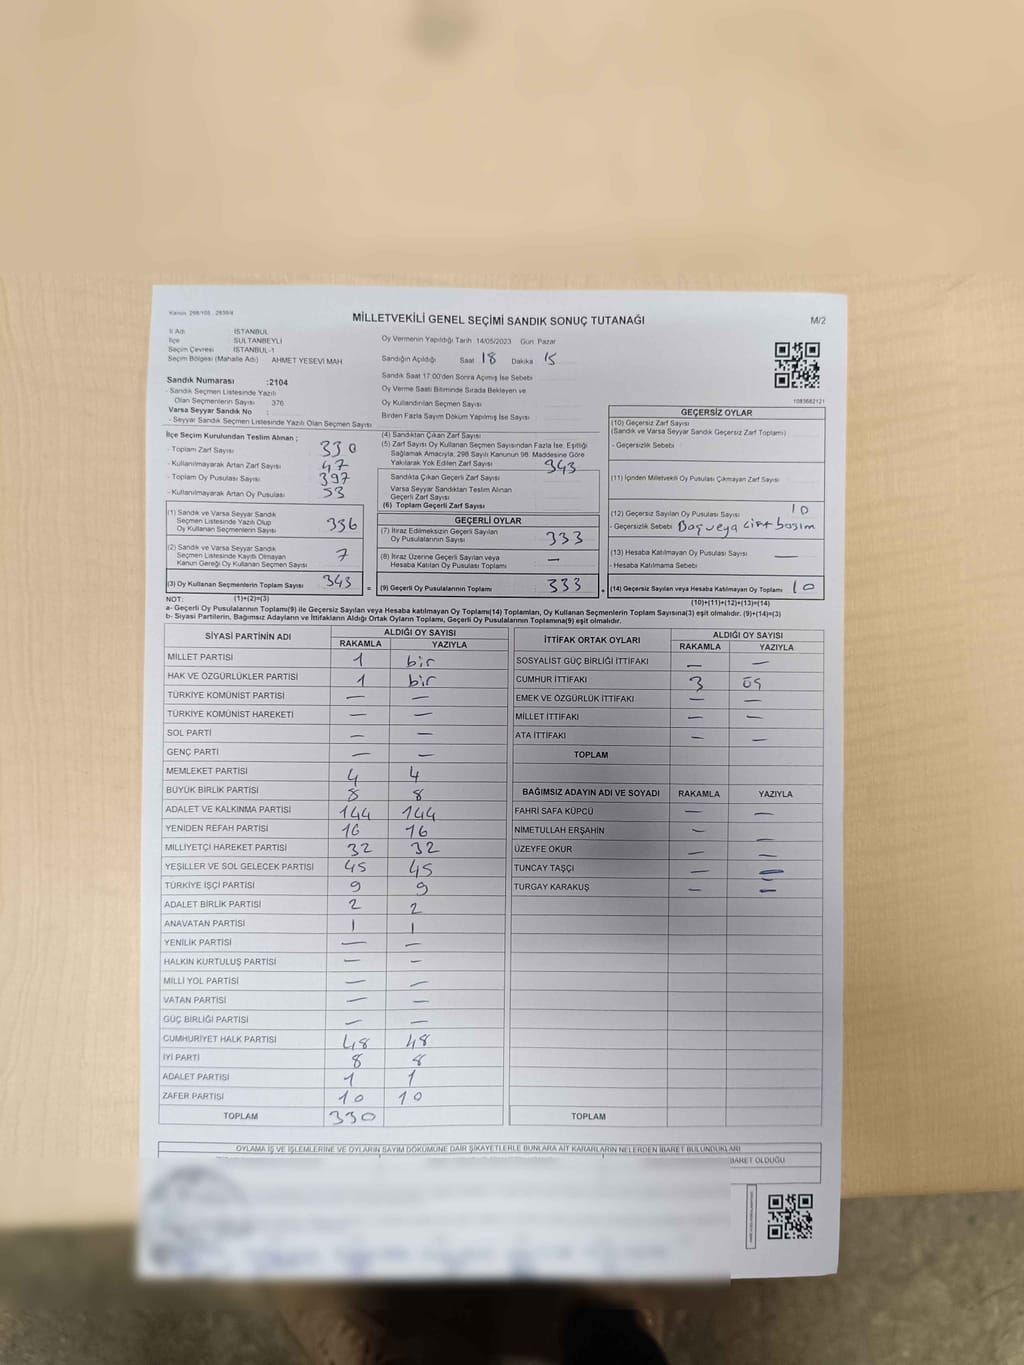 Kanun 298/105 , 2839/4
MİLLETVEKİLİ GENEL SEÇİMİ SANDIK SONUÇ TUTANAĞI
M/2
İl Adı İSTANBUL
İlçe SULTANBEYLİ
Seçim Çevresi İSTANBUL-1
Seçim Bölgesi (Mahalle Adı) AHMET YESEVİ MAH
Sandık Numarası :2104
- Sandık Seçmen Listesinde Yazılı
Olan Seçmenlerin Sayısı 376
Varsa Seyyar Sandık No :
- Seyyar Sandık Seçmen Listesinde Yazılı Olan Seçmen Sayısı
Oy Vermenin Yapıldığı Tarih 14/05/2023 Gün Pazar
Sandığın Açıldığı Saat 18 Dakika 15
Sandık Saat 17:00'den Sonra Açımış İse Sebebi
Oy Verme Saati Bitiminde Sırada Bekleyen ve
Oy Kullandırılan Seçmen Sayısı
Birden Fazla Sayım Döküm Yapılmış İse Sayısı
1083682121
İlçe Seçim Kurulundan Teslim Alınan ;
- Toplam Zarf Sayısı 330
- Kullanılmayarak Artan Zarf Sayısı 47
- Toplam Oy Pusulası Sayısı 397
- Kullanılmayarak Artan Oy Pusulası 53
(1) Sandık ve Varsa Seyyar Sandık
Seçmen Listesinde Yazılı Olup
Oy Kullanan Seçmenlerin Sayısı 336
(2) Sandık ve Varsa Seyyar Sandık
Seçmen Listesinde Kayıtlı Olmayan
Kanun Gereği Oy Kullanan Seçmen Sayısı 7
(3) Oy Kullanan Seçmenlerin Toplam Sayısı 343 =
(4) Sandıktan Çıkan Zarf Sayısı
(5) Zarf Sayısı Oy Kullanan Seçmen Sayısından Fazla İse, Eşitliği
Sağlamak Amacıyla; 298 Sayılı Kanunun 98. Maddesine Göre
Yakılarak Yok Edilen Zarf Sayısı 343
Sandıkta Çıkan Geçerli Zarf Sayısı
Varsa Seyyar Sandıktan Teslim Alınan
Geçerli Zarf Sayısı
(6) Toplam Geçerli Zarf Sayısı
GEÇERLİ OYLAR
(7) İtiraz Edilmeksizin Geçerli Sayılan
Oy Pusulalarının Sayısı 333
(8) İtiraz Üzerine Geçerli Sayılan veya
Hesaba Katılan Oy Pusulası Toplamı —
(9) Geçerli Oy Pusulalarının Toplamı 333 +
GEÇERSİZ OYLAR
(10) Geçersiz Zarf Sayısı
(Sandık ve Varsa Seyyar Sandık Geçersiz Zarf Toplamı)
- Geçersizlik Sebebi
(11) İçinden Milletvekili Oy Pusulası Çıkmayan Zarf Sayısı
(12) Geçersiz Sayılan Oy Pusulası Sayısı 10
- Geçersizlik Sebebi Boş veya çift basım
(13) Hesaba Katılmayan Oy Pusulası Sayısı —
- Hesaba Katılmama Sebebi
(14) Geçersiz Sayılan veya Hesaba Katılmayan Oy Toplamı 10
NOT: (1)+(2)=(3)
(10)+(11)+(12)+(13)=(14)
a- Geçerli Oy Pusulalarının Toplamı(9) ile Geçersiz Sayılan veya Hesaba katılmayan Oy Toplamı(14) Toplamları, Oy Kullanan Seçmenlerin Toplam Sayısına(3) eşit olmalıdır. (9)+(14)=(3)
b- Siyasi Partilerin, Bağımsız Adayların ve İttifakların Aldığı Ortak Oyların Toplamı, Geçerli Oy Pusulalarının Toplamına(9) eşit olmalıdır.
SİYASİ PARTİNİN ADI ALDIĞI OY SAYISI
RAKAMLA YAZIYLA
MİLLET PARTİSİ 1 bir
HAK VE ÖZGÜRLÜKLER PARTİSİ 1 bir
TÜRKİYE KOMÜNİST PARTİSİ — —
TÜRKİYE KOMÜNİST HAREKETİ — —
SOL PARTİ — —
GENÇ PARTİ — —
MEMLEKET PARTİSİ 4 4
BÜYÜK BİRLİK PARTİSİ 8 8
ADALET VE KALKINMA PARTİSİ 144 144
YENİDEN REFAH PARTİSİ 16 16
MİLLİYETÇİ HAREKET PARTİSİ 32 32
YEŞİLLER VE SOL GELECEK PARTİSİ 45 45
TÜRKİYE İŞÇİ PARTİSİ 9 9
ADALET BİRLİK PARTİSİ 2 2
ANAVATAN PARTİSİ 1 1
YENİLİK PARTİSİ — —
HALKIN KURTULUŞ PARTİSİ — —
MİLLİ YOL PARTİSİ — —
VATAN PARTİSİ — —
GÜÇ BİRLİĞİ PARTİSİ — —
CUMHURİYET HALK PARTİSİ 48 48
İYİ PARTİ 8 8
ADALET PARTİSİ 1 1
ZAFER PARTİSİ 10 10
TOPLAM 330
İTTİFAK ORTAK OYLARI ALDIĞI OY SAYISI
RAKAMLA YAZIYLA
SOSYALİST GÜÇ BİRLİĞİ İTTİFAKI — —
CUMHUR İTTİFAKI 3 üç
EMEK VE ÖZGÜRLÜK İTTİFAKI — —
MİLLET İTTİFAKI — —
ATA İTTİFAKI — —
TOPLAM
BAĞIMSIZ ADAYIN ADI VE SOYADI RAKAMLA YAZIYLA
FAHRİ SAFA KÜPCÜ — —
NİMETULLAH ERŞAHİN — —
ÜZEYFE OKUR — —
TUNCAY TAŞÇI — —
TURGAY KARAKUŞ — —
TOPLAM
OYLAMA İŞ VE İŞLEMLERİNE VE OYLARIN SAYIM DÖKÜMÜNE DAİR ŞİKAYETLERLE BUNLARA AİT KARARLARIN NELERDEN İBARET BULUNDUKLARI
İBARET OLDUĞU